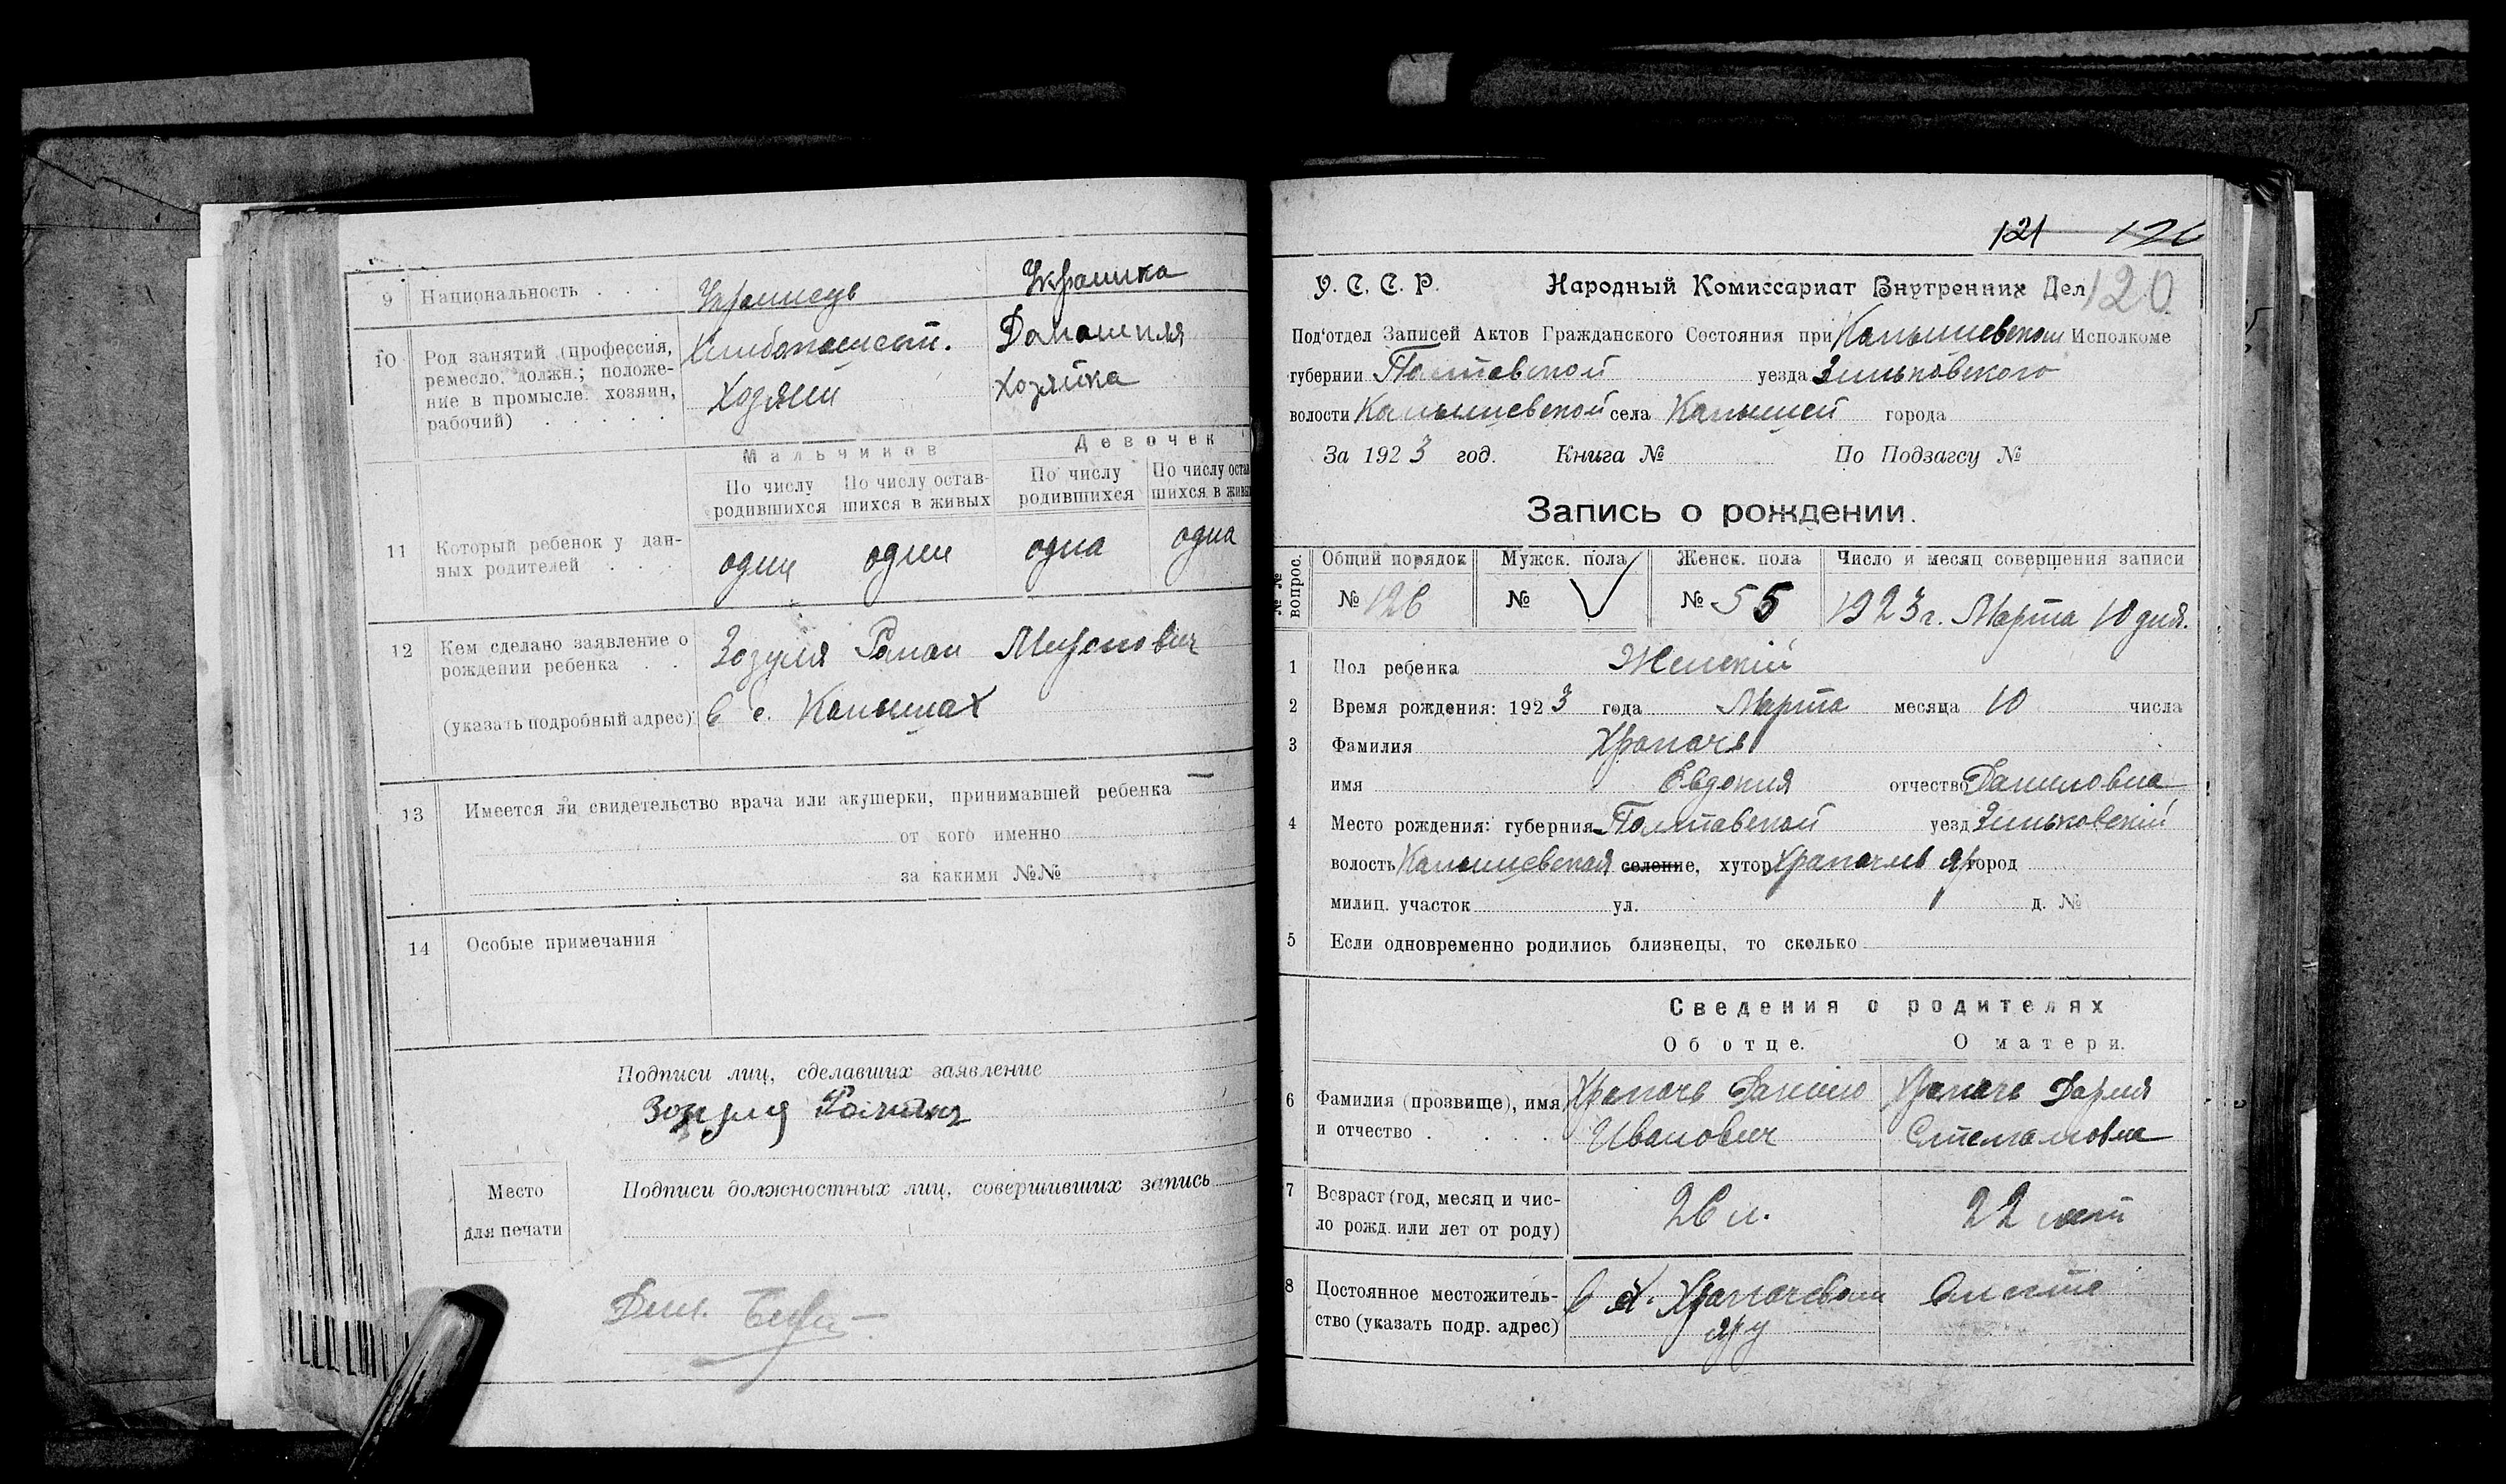 9 Национальность . . . Украинець Украинка
10 Род занятий (профессия, ремесло, должн.; положение в промысле: хозяин, рабочий) . . . . .
Хлебопашест. Домашняя
Хозяин хозяйка
Мальчиков Девочек
По числу родившихся По числу оставшихся в живых По числу родившихся По числу остав шихся в живы
11 Который ребенок у данных родителей . . . один один одна одна
12 Кем сделано заявление о рождении ребенка . . Зозуля Роман Миронович
(указать подробный адрес) в с. Камышах
13 Имеется ли свидетельство врача или акушерки, принимавшей ребенка —
от кого именно
за какими №№
14 Особые примечания
Подписи лиц, сделавших заявление
Зозуля Роман
Место
для печати
Подписи должностных лиц, совершивших запись
121 126
У. С. С. Р. Народный Комиссариат Внутренних Дел 120
Под'отдел Записей Актов Гражданского Состояния при Камышевском Исполкоме
губернии Полтавской уезда Зиньковского
волости Камышевской села Камышей города
За 1923 год. Книга № По Подзагсу №
Запись о рождении.
№№ вопрос. Общий порядок Мужск. пола Женск. пола Число и месяц совершения записи
№ 126 № № 55 1923 г. Марта 10 дня.
1 Пол ребенка Женский
2 Время рождения: 1923 года Марта месяца 10 числа
3 Фамилия Храпачь
имя Евдокия отчество Даниловна
4 Место рождения: губерния Полтавской уезд Зиньковский
волость Камышевская селение, хутор Храпачив яр город
милиц. участок ул. д. №
5 Если одновременно родились близнецы, то сколько
Сведения о родителях
Об отце. О матери.
6 Фамилия (прозвище), имя Храпачь Данило Храпачь Дария
и отчество . . . . Иванович Степановна
7 Возраст (год, месяц и число рожд. или лет от роду) 26 л. 22 лет
8 Постоянное местожительство (указать подр. адрес) в х. Храпачевом яру